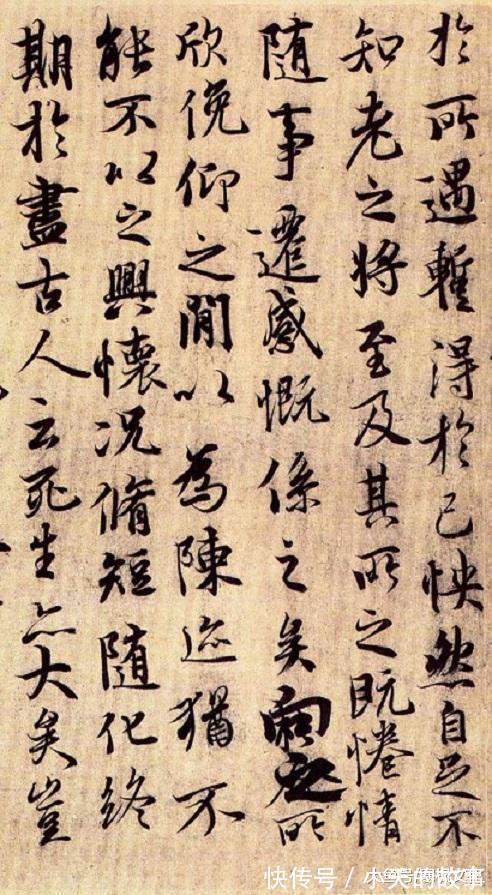 於所遇暫得於己怏然自足不
知老之將至及其所之既惓情
隨事遷感慨係之矣向之所
欣俛仰之閒以為陳迹猶不
能不以之興懷況脩短隨化終
期於盡古人云死生亦大矣豈
快传号 / 的故事